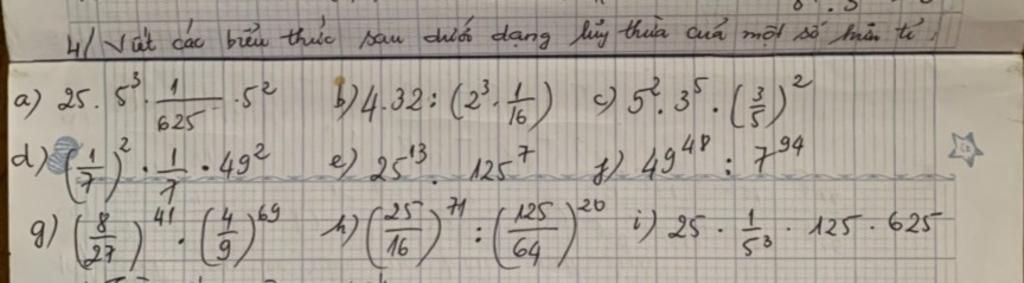 4/ Viết các biểu thức sau dưới dạng lũy thừa của một số hữu tỉ.
a) 25 . 5³ . 1/625 . 5² b) 4.32 : (2³ . 1/16) c) 5² . 3⁵ . (3/5)²
d) (1/7)² . 1/7 . 49² e) 25¹³ : 125⁷ f) 49⁴⁸ : 7⁹⁴
g) (8/27)⁴¹ . (4/9)⁶⁹ h) (25/16)⁷¹ : (125/64)²⁰ i) 25 . 1/5³ . 125 . 625